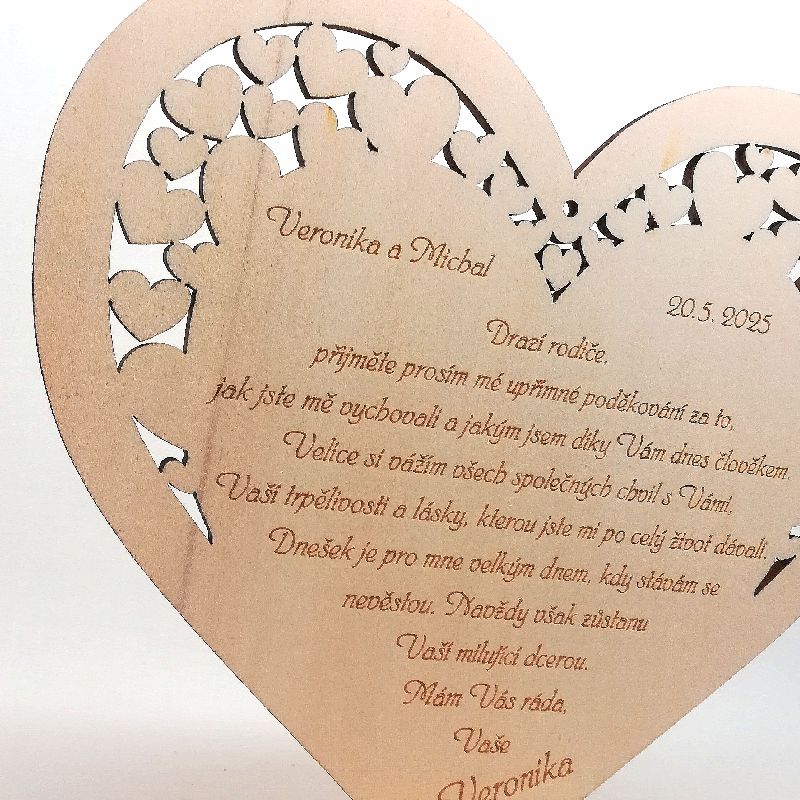 Veronika a Michal
20.5. 2025
Drazí rodiče,
přijměte prosím mé upřímné poděkování za to,
jak jste mě vychovali a jakým jsem díky Vám dnes člověkem.
Velice si vážím všech společných chvil s Vámi,
Vaší trpělivosti a lásky, kterou jste mi po celý život dávali.
Dnešek je pro mne velkým dnem, kdy stávám se
nevěstou. Navždy však zůstanu
Vaší milující dcerou.
Mám Vás ráda,
Vaše
Veronika